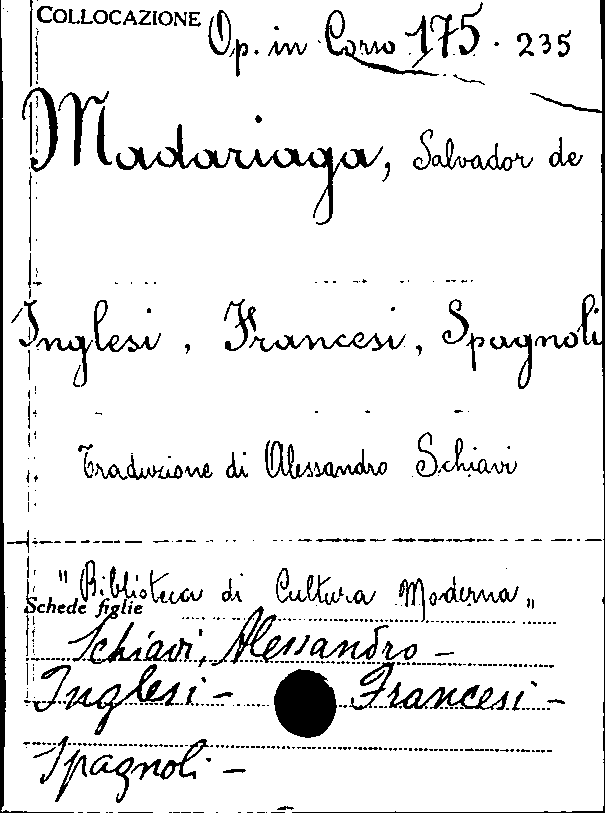 COLLOCAZIONE Op. in Corso 175 · 235
Madariaga, Salvador de
Inglesi, Francesi, Spagnoli
Traduzione di Alessandro Schiavi
"Biblioteca di Cultura Moderna„
Schede figlie
Schiavi, Alessandro –
Inglesi – Francesi –
Spagnoli –